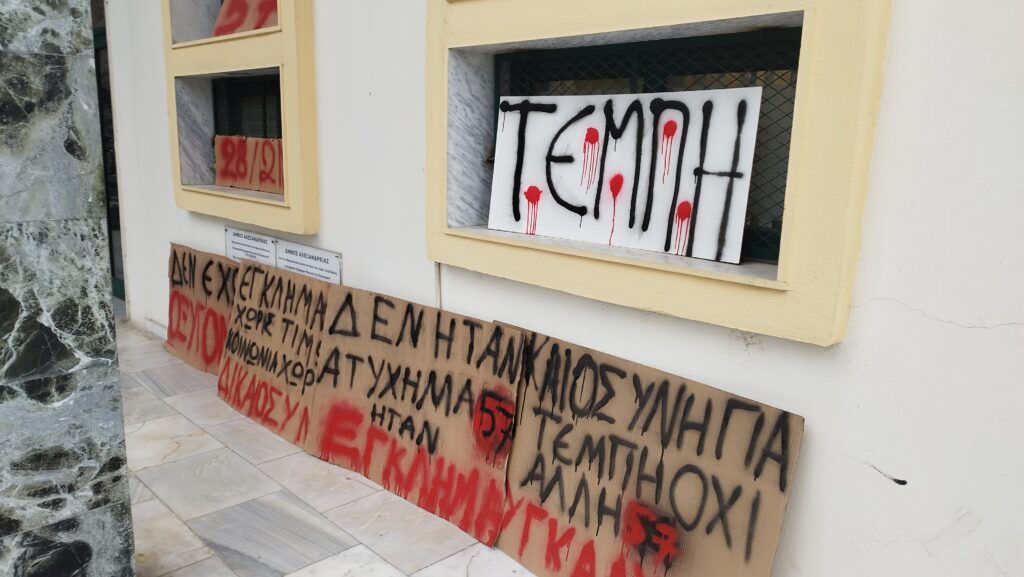 28/2
ΤΕΜΠΗ
ΔΗΜΟΣ ΑΛΕΞΑΝΔΡΕΙΑΣ
ΔΗΜΟΣ ΑΛΕΞΑΝΔΡΕΙΑΣ
ΔΕΝ ΕΧ
ΟΞΥΓΟ
ΕΓΚΛΗΜΑ
ΧΩΡΙΣ ΤΙΜΩ
ΚΟΙΝΩΝΙΑ ΧΩΡ
ΔΙΚΑΟΣΥΝ
ΔΕΝ ΗΤΑΝ
ΑΤΥΧΗΜΑ
57
ΗΤΑΝ
ΕΓΚΛΗΜΑ
ΚΑΙΟΣΥΝΗ ΓΙΑ
ΤΕΜΠΗ ΟΧΙ
ΑΛΛΗ
57
ΥΓΚΑ